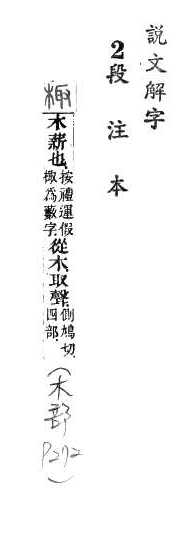 說文解字
2段注本
棷 木薪也。按禮運假棷為藪字。從木取聲。側鳩切。四部。(木部 P272)